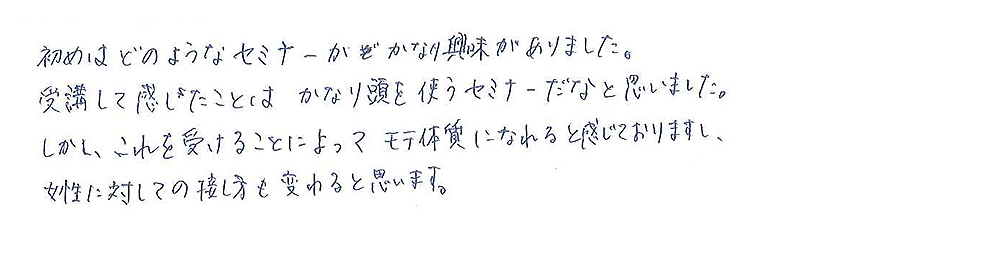 初めはどのようなセミナーかぜかなり興味がありました。
受講して感じたことは かなり頭を使うセミナーだなと思いました。
しかし、これを受けることによって モテ体質になれると感じておりますし、
女性に対しての接し方も変わると思います。